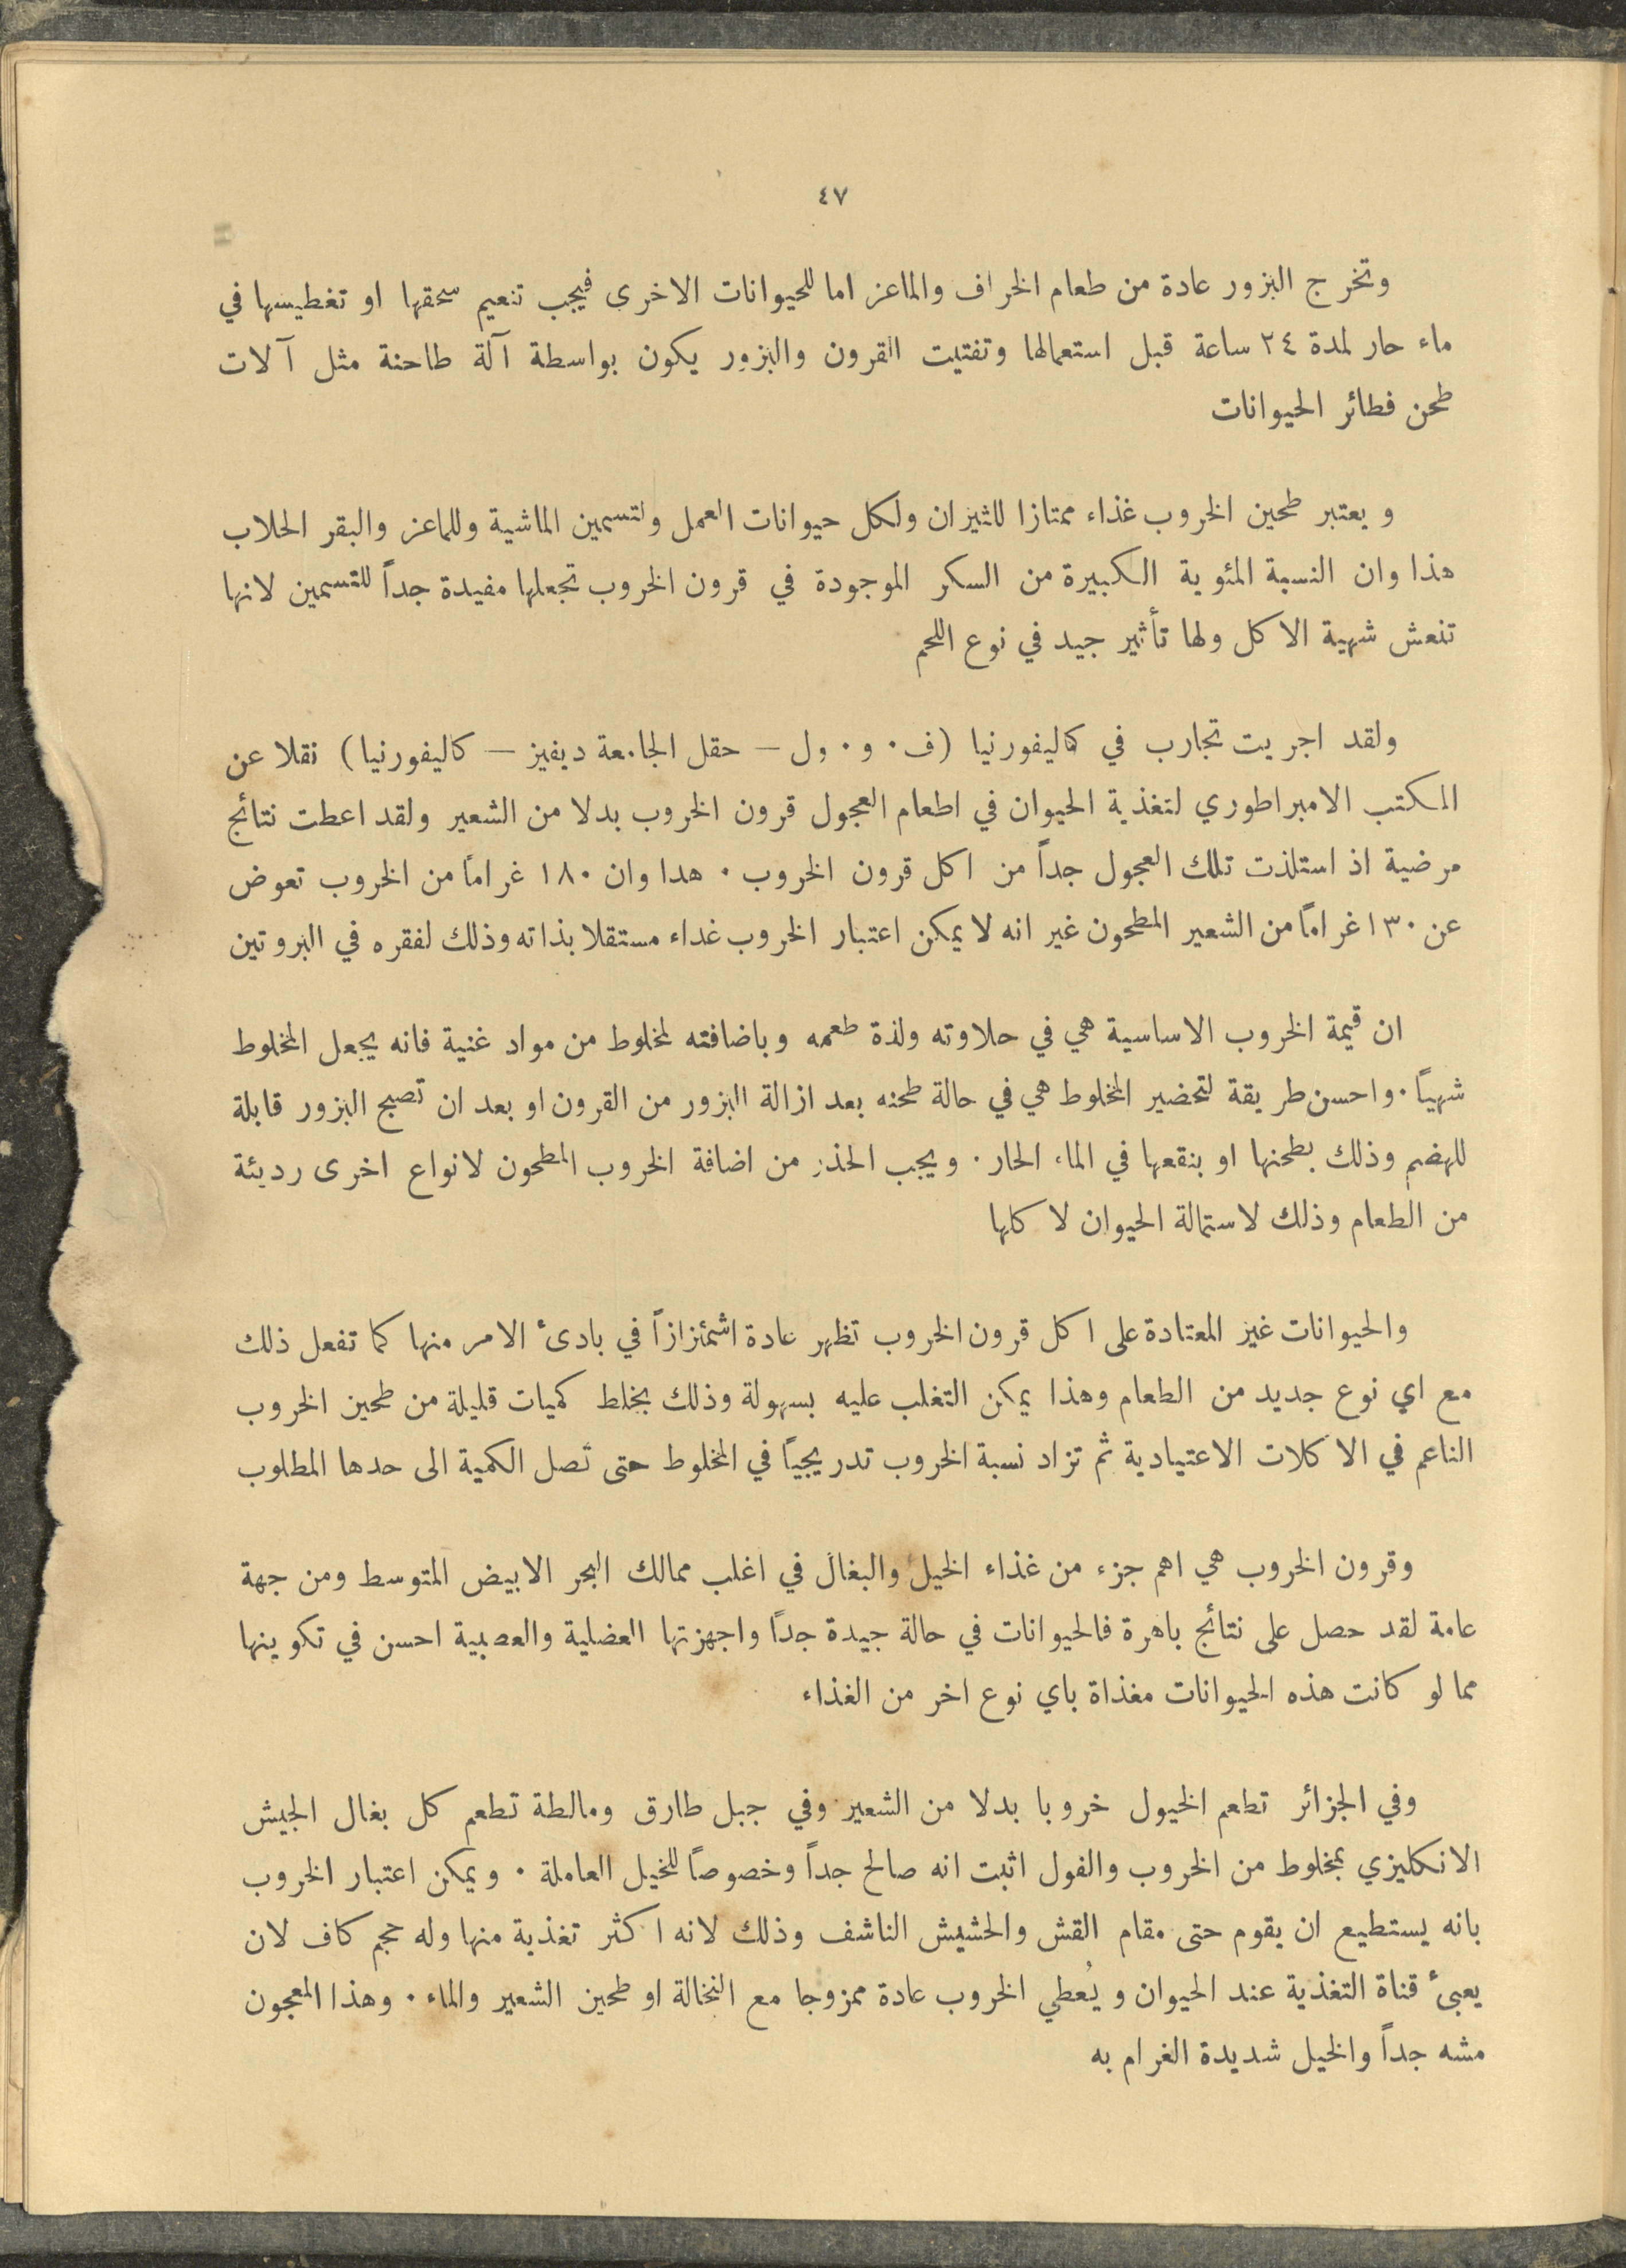 ٤٧
وتخرج البزور عادة من طعام الخراف والماعز اما للحيوانات الاخرى فيجب تنعيم سحقها او تغطيسها في
ماء حار لمدة ٢٤ ساعة قبل استعمالها وتفتيت القرون والبزور يكون بواسطة آلة طاحنة مثل آلات
طحن فطائر الحيوانات
ويعتبر طحين الخروب غذاء ممتازا للثيران ولكل حيوانات العمل ولتسمين الماشية وللماعز والبقر الحلاب
هذا وان النسبة المئوية الكبيرة من السكر الموجودة في قرون الخروب تجعلها مفيدة جداً للتسمين لانها
تنعش شهية الاكل ولها تأثير جيد في نوع اللحم
ولقد اجريت تجارب في كاليفورنيا (ف٠ و٠ ول — حقل الجامعة ديفيز — كاليفورنيا) نقلا عن
المكتب الامبراطوري لتغذية الحيوان في اطعام العجول قرون الخروب بدلا من الشعير ولقد اعطت نتائج
مرضية اذ استلذت تلك العجول جداً من اكل قرون الخروب ٠ هدا وان ١٨٠ غراماً من الخروب تعوض
عن ١٣٠ غراماً من الشعير المطحون غير انه لا يمكن اعتبار الخروب غداء مستقلا بذاته وذلك لفقره في البروتين
ان قيمة الخروب الاساسية هي في حلاوته ولذة طعمه وباضافته لمخلوط من مواد غنية فانه يجعل المخلوط
شهياً ٠ واحسن طريقة لتحضير المخلوط هي في حالة طحنه بعد ازالة البزور من القرون او بعد ان تصبح البزور قابلة
للهضم وذلك بطحنها او بنقعها في الماء الحار ٠ ويجب الحذر من اضافة الخروب المطحون لانواع اخرى رديئة
من الطعام وذلك لاستمالة الحيوان لاكلها
والحيوانات غير المعتادة على اكل قرون الخروب تظهر عادة اشمئزازاً في بادىء الامر منها كما تفعل ذلك
مع اي نوع جديد من الطعام وهذا يمكن التغلب عليه بسهولة وذلك بخلط كميات قليلة من طحين الخروب
الناعم في الاكلات الاعتيادية ثم تزاد نسبة الخروب تدريجياً في المخلوط حتى تصل الكمية الى حدها المطلوب
وقرون الخروب هي اهم جزء من غذاء الخيل والبغال في اغلب ممالك البحر الابيض المتوسط ومن جهة
عامة لقد حصل على نتائج باهرة فالحيوانات في حالة جيدة جداً واجهزتها العضلية والعصبية احسن في تكوينها
مما لو كانت هذه الحيوانات مغذاة باي نوع اخر من الغذاء
وفي الجزائر تطعم الخيول خروبا بدلا من الشعير وفي جبل طارق ومالطة تطعم كل بغال الجيش
الانكليزي بمخلوط من الخروب والفول اثبت انه صالح جداً وخصوصاً للخيل العاملة ٠ ويمكن اعتبار الخروب
بانه يستطيع ان يقوم حتى مقام القش والحشيش الناشف وذلك لانه اكثر تغذية منها وله حجم كاف لان
يعبىء قناة التغذية عند الحيوان ويُعطي الخروب عادة ممزوجا مع النخالة او طحين الشعير والماء ٠ وهذا المعجون
مشه جداً والخيل شديدة الغرام به